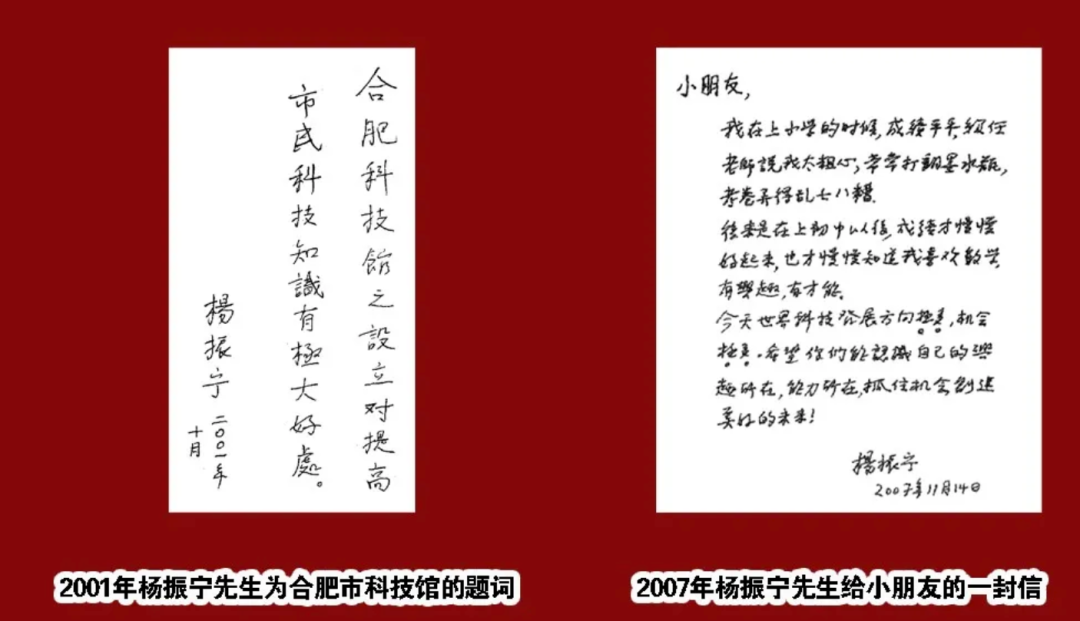 合肥科技館之設立对提高
市民科技知識有極大好處。
楊振宁
二〇〇一年
十月
小朋友,
我在上小学的时候,成績平平,級任
老師說我太粗心,常常打翻墨水瓶,
考卷弄得乱七八糟.
後來是在上初中以後,成績才慢慢
好起來,也才慢慢知道我喜欢数学,
有興趣,有才能.
今天世界科技發展方向极多,机会
极多.希望你们能認識自己的興
趣所在,能力所在,抓住机会創造
美好的未来!
楊振宁
2007年11月14日
2001年杨振宁先生为合肥市科技馆的题词
2007年杨振宁先生给小朋友的一封信